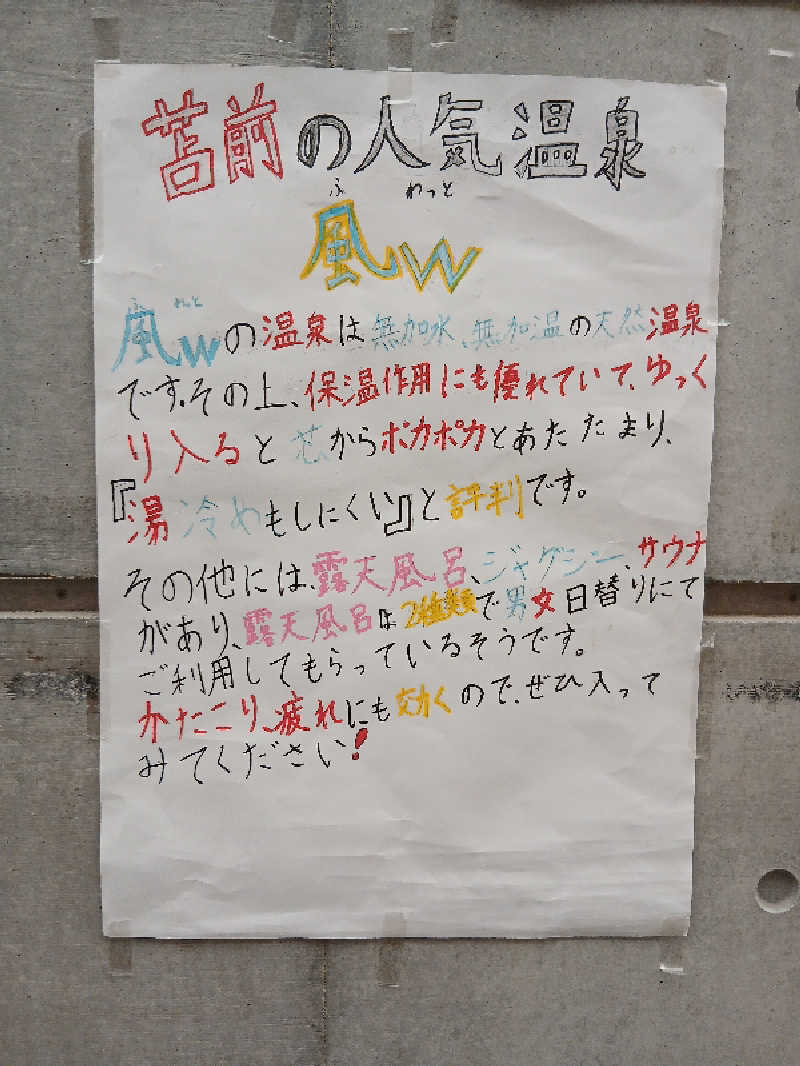 苫前の人気温泉
ふ わっと
風W
ふ わっと
風Wの温泉は無加水、無加温の天然温泉
です。その上、保温作用にも優れていて、ゆっく
り入ると芯からポカポカとあたたまり、
『湯冷めもしにくい』と評判です。
その他には、露天風呂、ジャグジー、サウナ
があり、露天風呂は2種類で男女日替りにて
ご利用してもらっているそうです。
かたこり、疲れにも効くので、ぜひ入って
みてください!